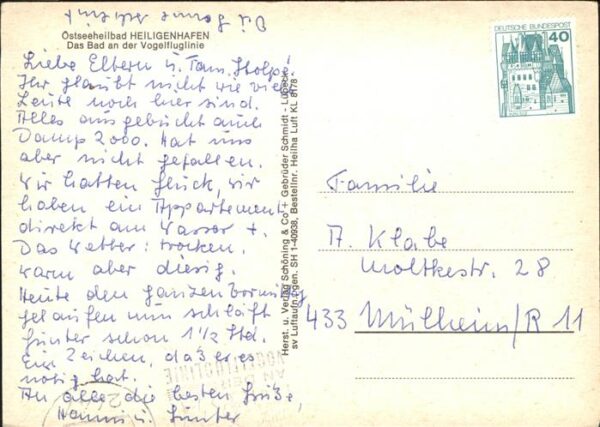 Die Sonne scheint.
Ostseeheilbad HEILIGENHAFEN
Das Bad an der Vogelfluglinie
Liebe Eltern u. Fam. Stolpe!
Ihr glaubt nicht wie viele
Leute noch hier sind.
Alles ausgebucht auch
Damp 2000. Hat uns
aber nicht gefallen.
Wir hatten Glück, wir
haben ein Appartement
direkt am Wasser +.
Das Wetter: trocken.
warm aber diesig.
Heute den ganzen Vormittag
gelaufen nun schläft
Günter schon 1 1/2 Std.
Ein Zeichen, daß er es
nötig hat.
An alle die besten Grüße,
Hanni u. Günter
Herst. u. Verlag Schöning & Co + Gebrüder Schmidt - Lübeck
sv Luftaufn. SH 1-40938, Bestellnr. Heilha Luft KL 8178
DEUTSCHE BUNDESPOST
40
Familie
A. Klabe
Moltkestr. 28
433 Mülheim/R 11
VOGELFLUGLINIE